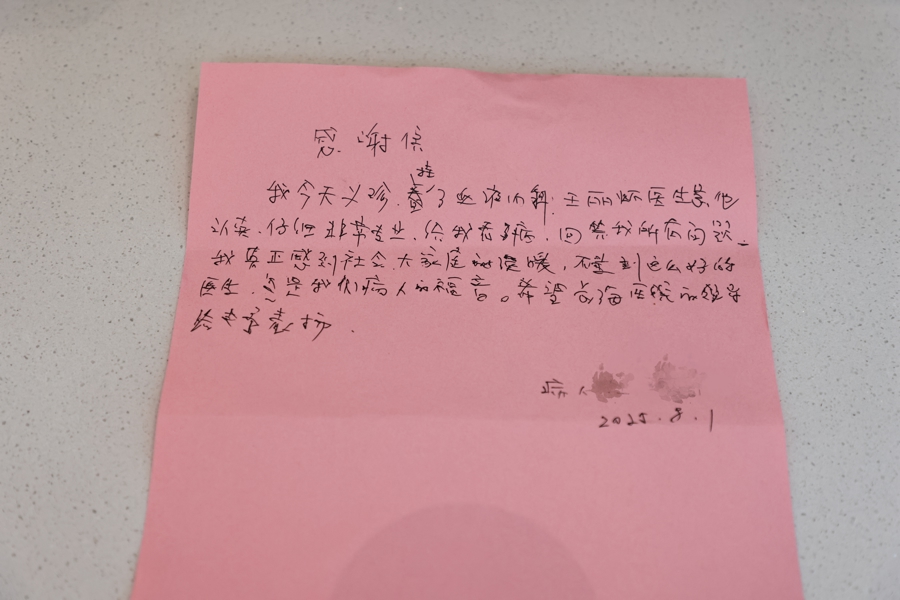 感谢信
挂
我今天义诊,看了血液内科,王丽娜医生,他
认真、仔细非常专业,给我看了病,回答我所有问题。
我真正感到社会大家庭的温暖,碰到这么好的
医生,这是我们病人的福音。希望长海医院的领导
给予表扬.
病人
2025.8.1